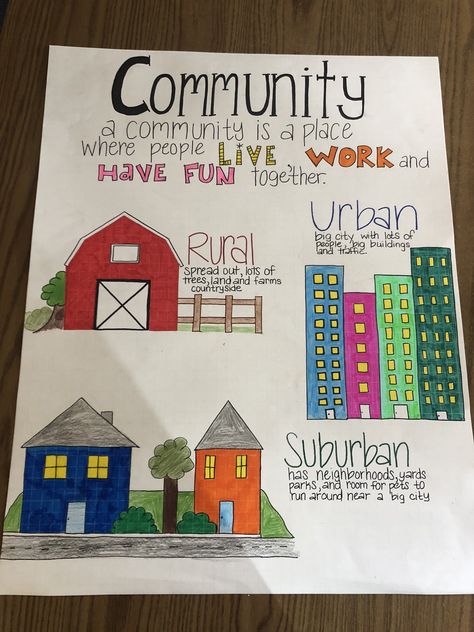 Community
a community is a place
where people LIVE, WORK and
HAVE FUN together.
Rural
spread out, lots of
trees, land and farms
countryside
Urban
big city with lots of
people, big buildings
and traffic.
Suburban
has neighborhoods, yards
parks, and room for pets to
run around near a big city